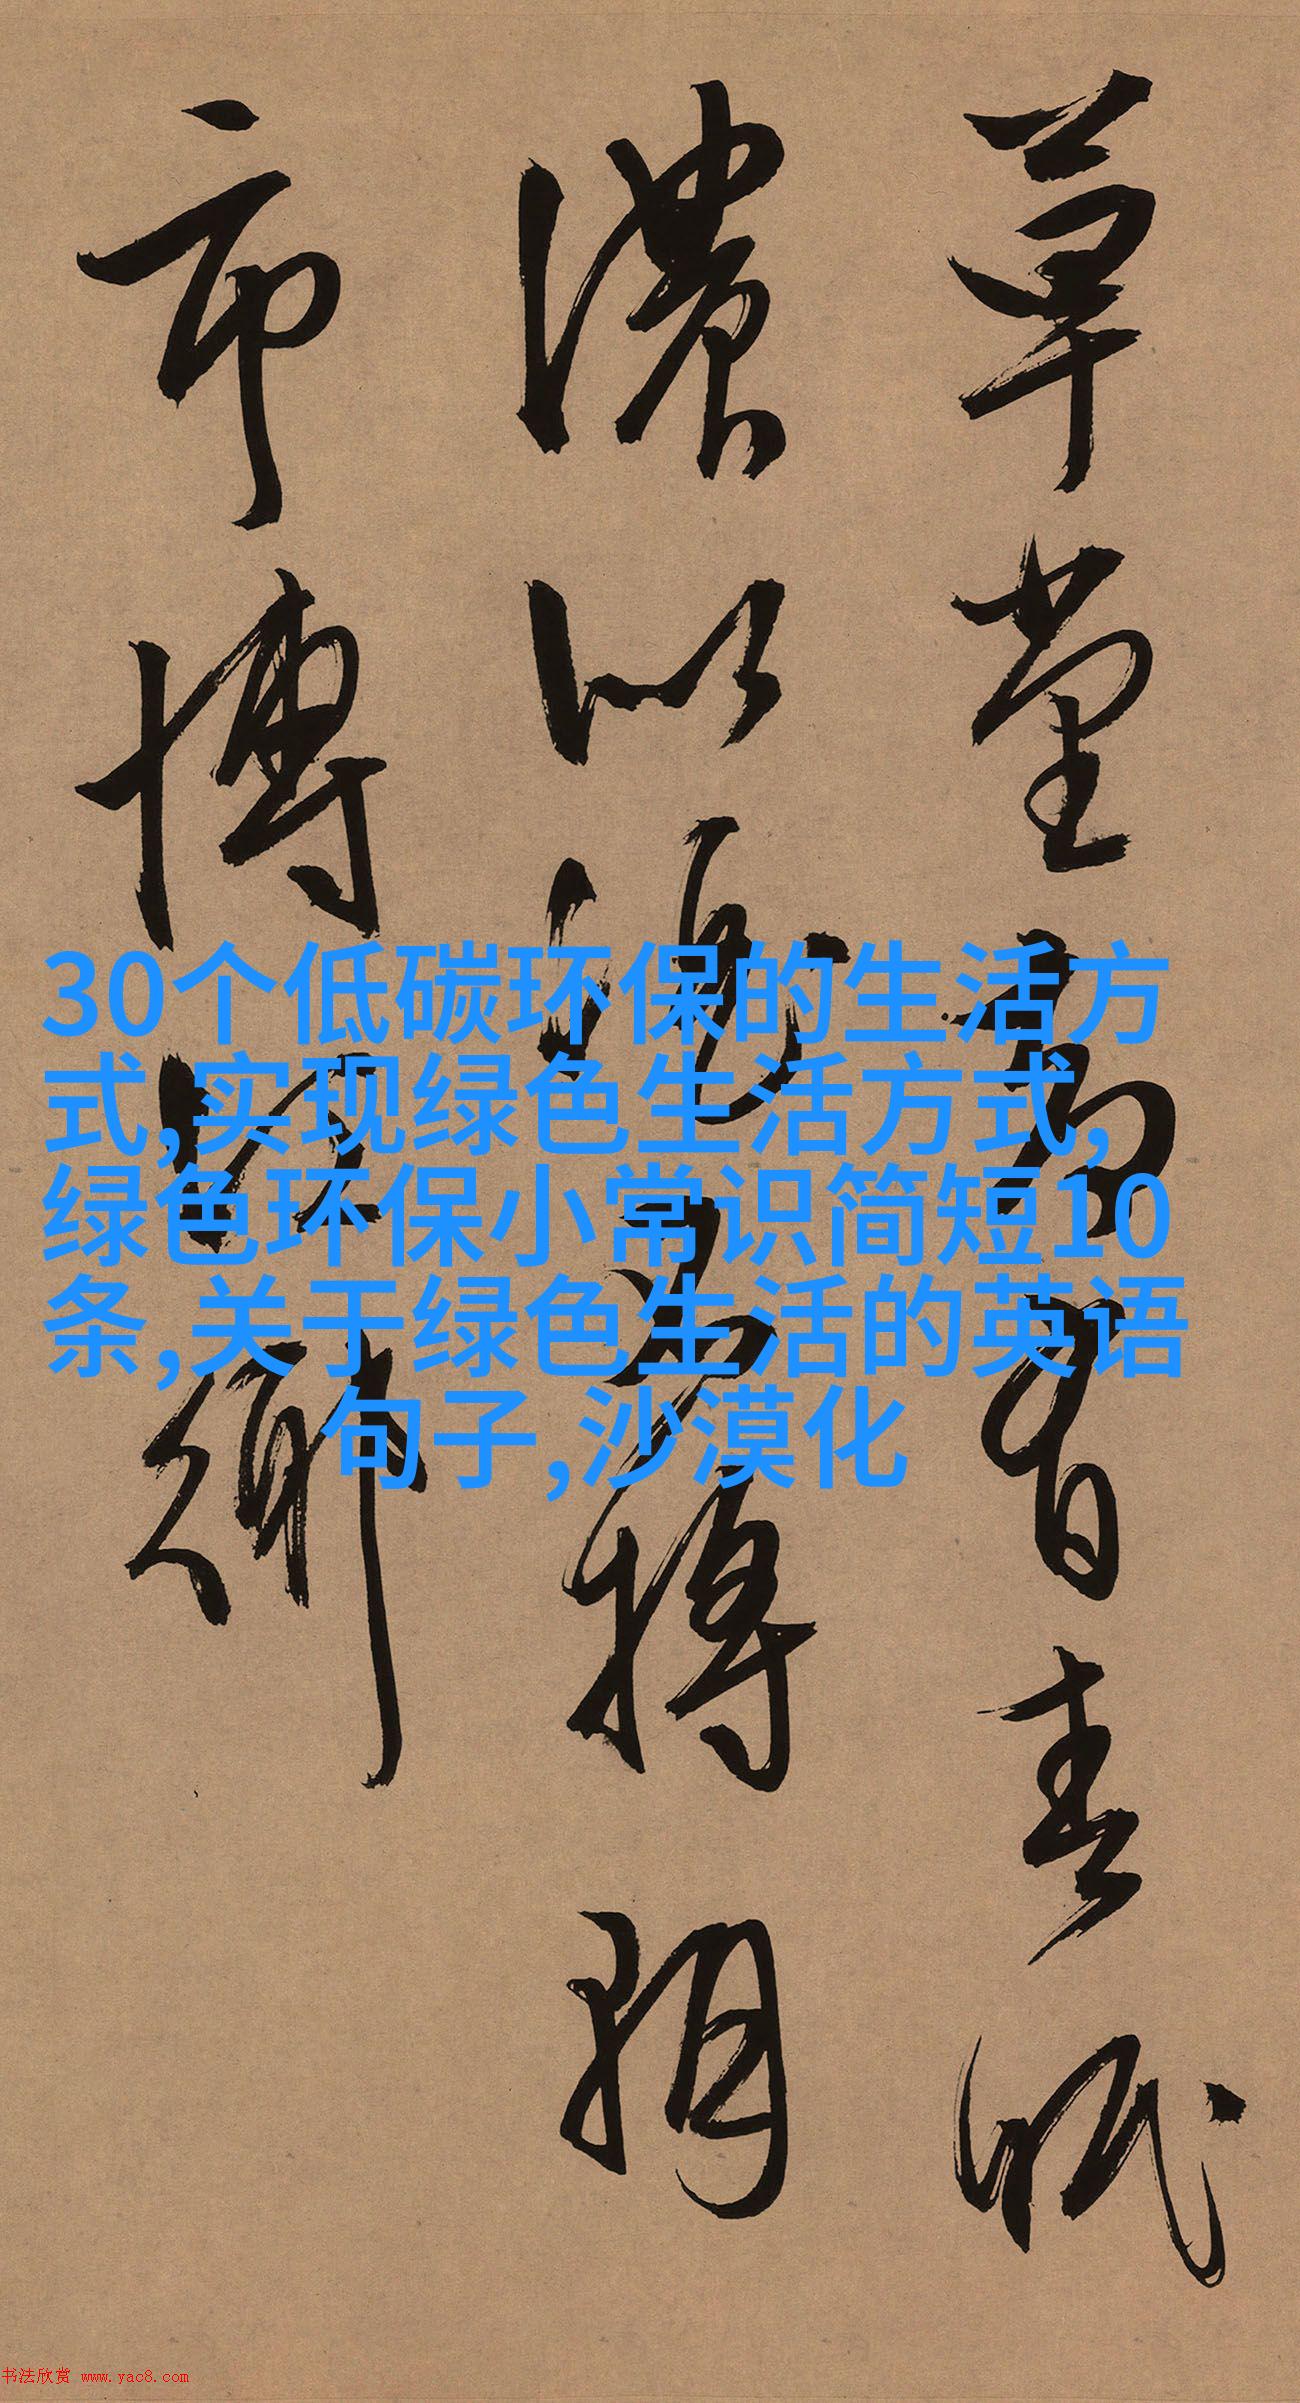 30个低碳环保的生活方
式,实现绿色生活方式,
绿色环保小常识简短10
条,关于绿色生活的英语
句子,沙漠化
草堂 有春
濃以
市博
书法欣赏 www.yac8.com